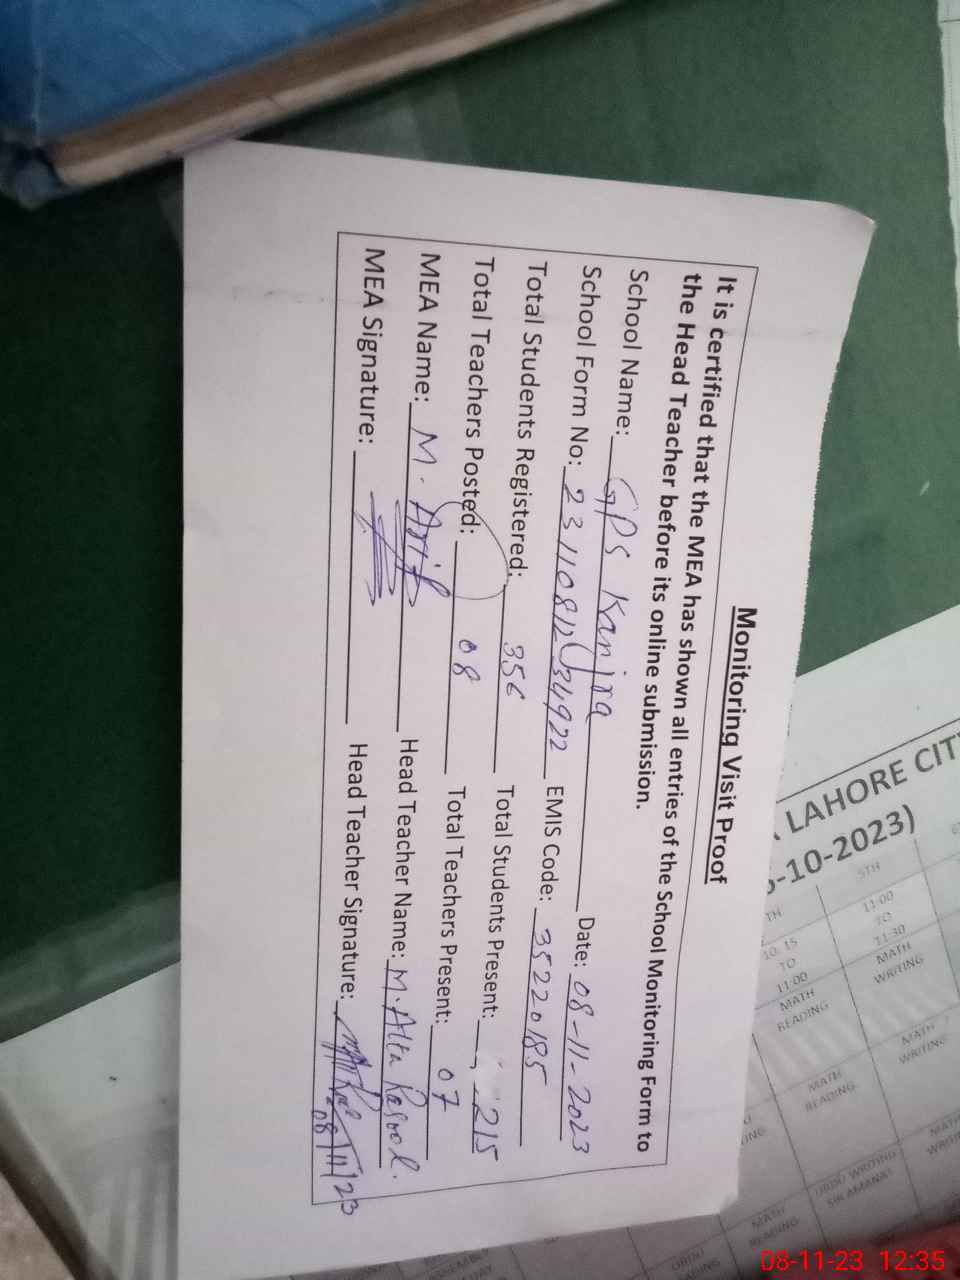 Monitoring Visit Proof
It is certified that the MEA has shown all entries of the School Monitoring Form to
the Head Teacher before its online submission.
School Name: GPS Kanjra Date: 08-11-2023
School Form No: EMIS Code: 35220185
Total Students Registered: 356 Total Students Present: 215
Total Teachers Posted: 08 Total Teachers Present: 07
MEA Name: M. Asif Head Teacher Name: M. Rasool.
MEA Signature: Head Teacher Signature:
08/11/23
LAHORE CITY
-10-2023)
5TH
11:00
TO
11:30
MATH
WRITING
10:15
TO
11:00
MATH
READING
MATH
WRITING
MATH
READING
URDU WRITING
SIR AMANAT
MATH
READING
URDU
08-11-23 12:35